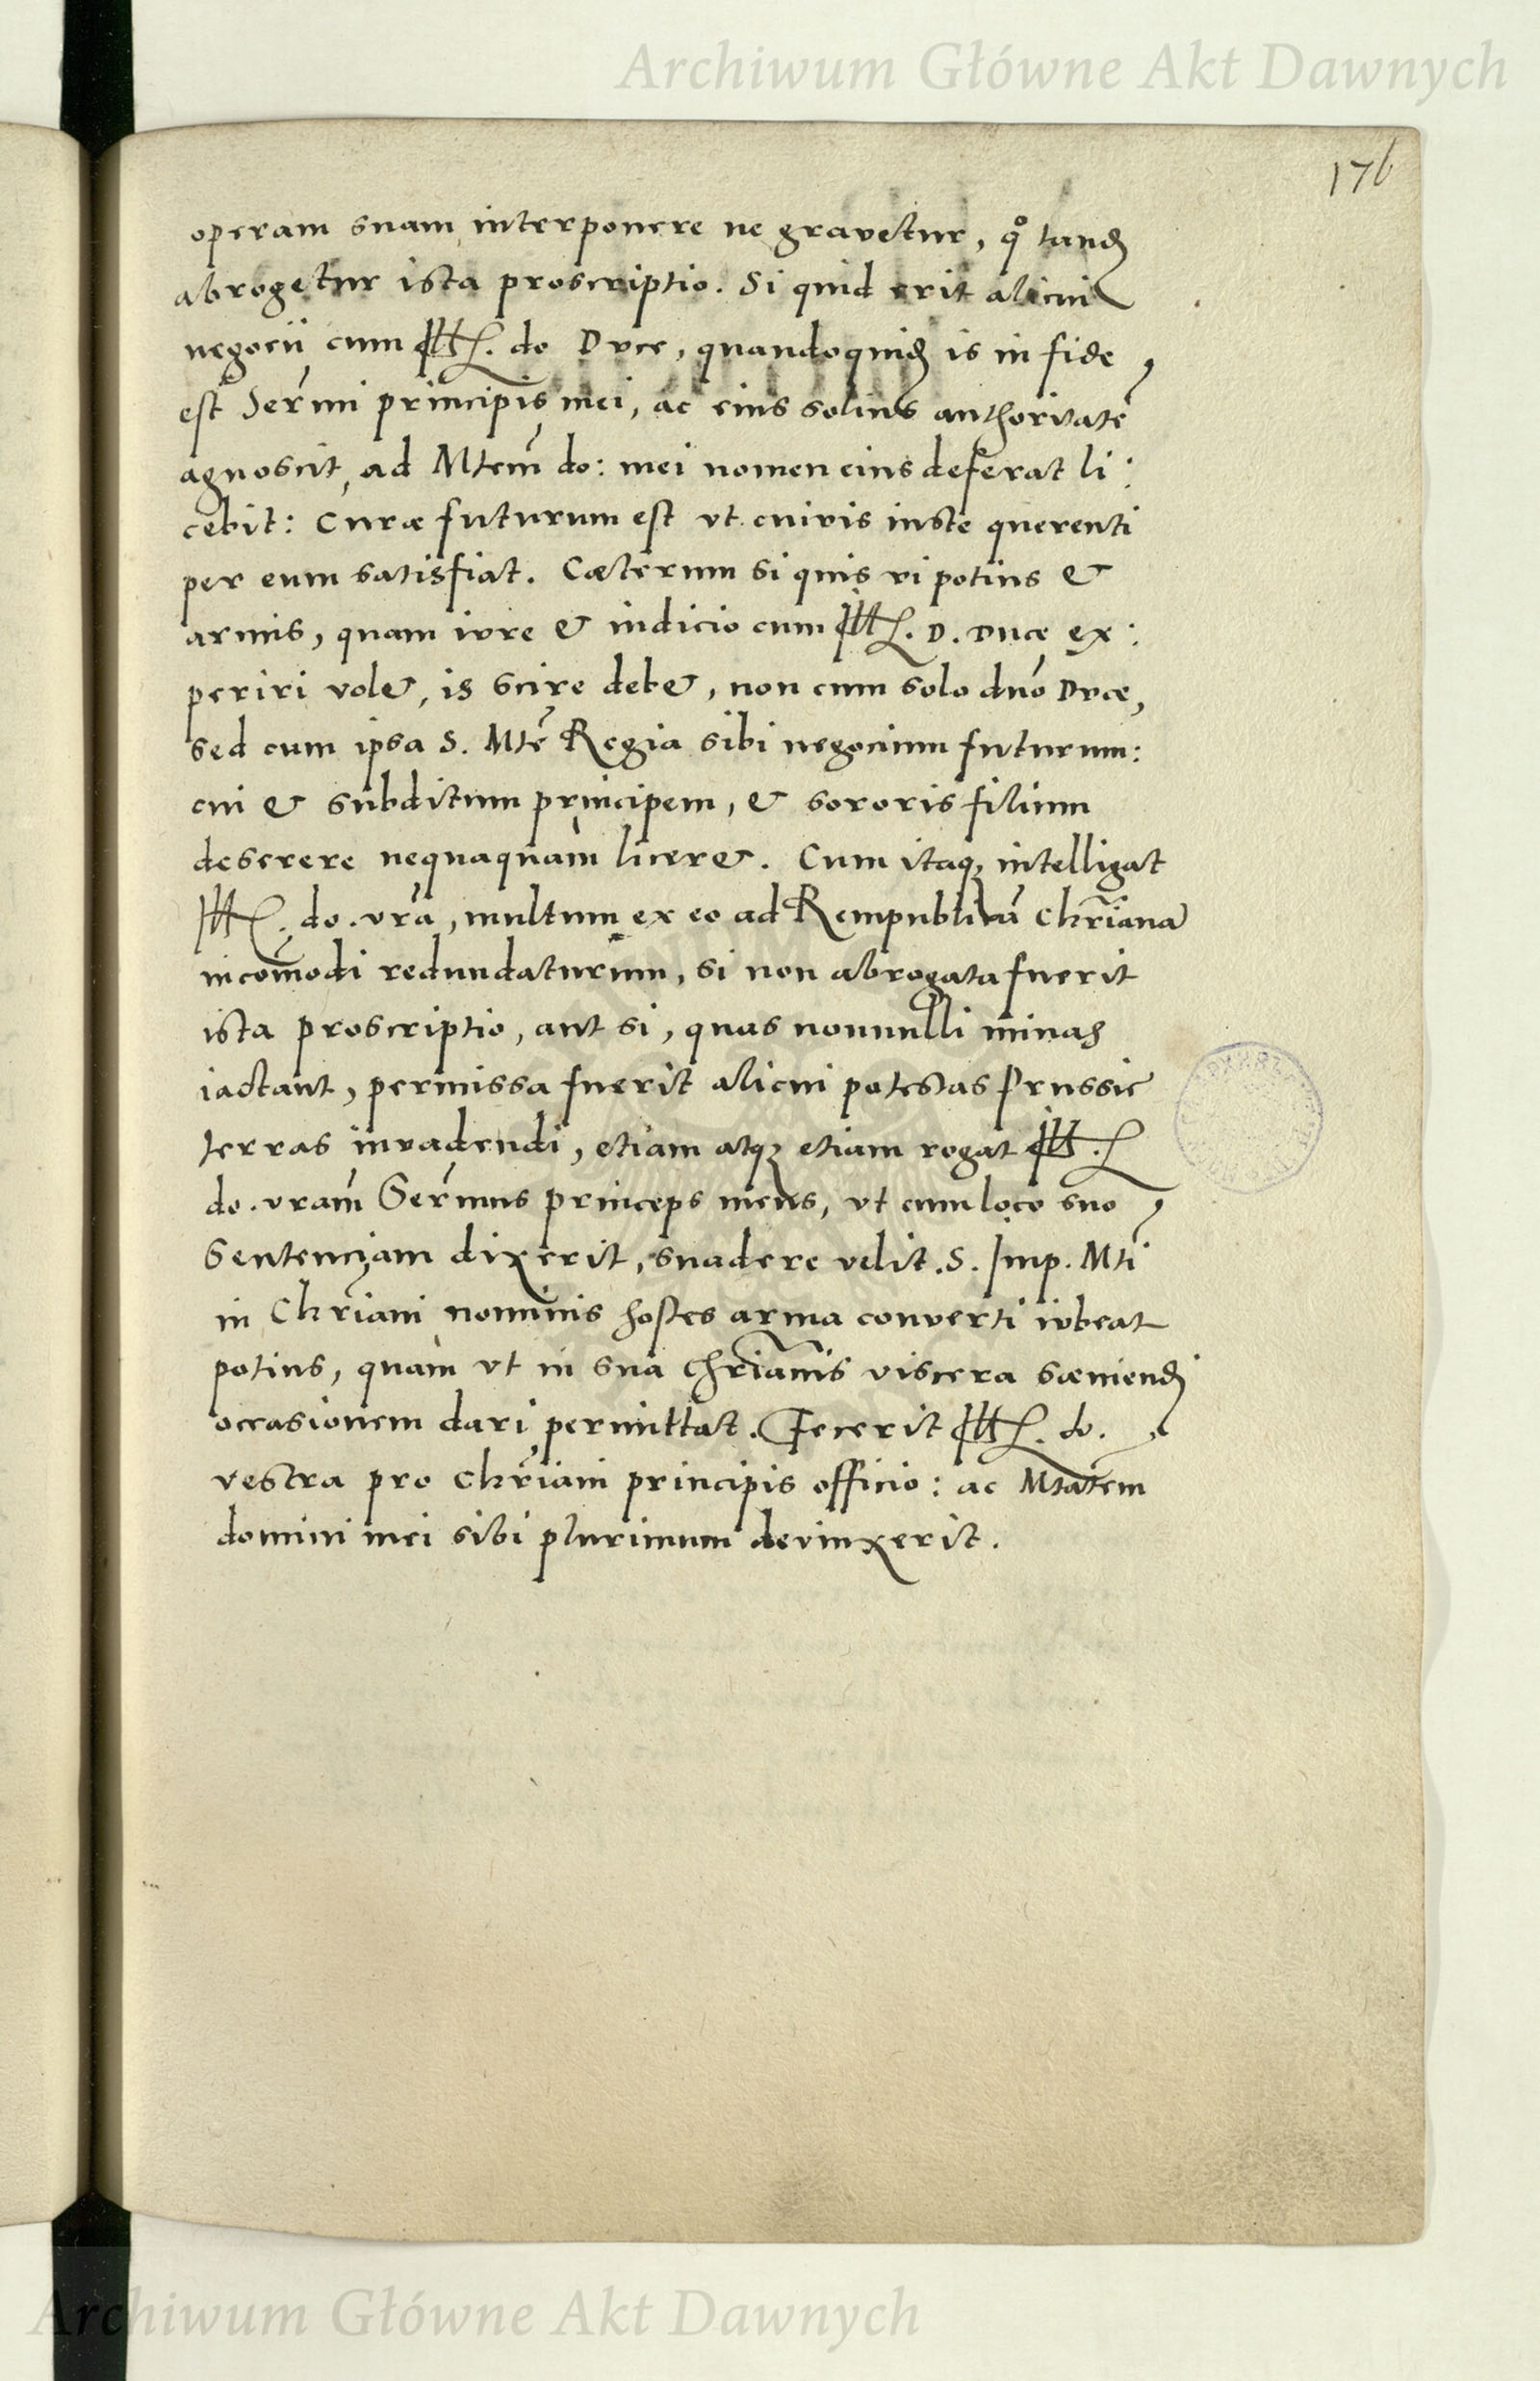 Archiwum Główne Akt Dawnych
176
operam suam interponere ne gravetur, qo tandẽ
abrogetur ista proscriptio. Si quid erit alicui
negocii cum Ill. do Duce, quandoquidẽ is in fide
est Sermi principis mei, ac eius solius authoritatẽ
agnoscit, ad Mtem do: mei nomen eius deferat li:
cebit: Curæ futurum est vt cuivis iuste querenti
per eum satisfiat. Cæterum si quis vi potius &
armis, quam iure & iudicio cum Ill. D. Duce ex:
periri vol&, is scire deb&, non cum solo dno Duce,
sed cum ipsa S. Mte Regia sibi negocium futurum:
cui & subditum principem, & sororis filium
deserere nequaquam licer&. Cum itaq; intelligat
Ill. do. vra, multum ex eo ad Rempublicã Chrianã
incomodi redundaturum, si non abrogata fuerit
ista proscriptio, aut si, quas nonnulli minas
iactant, permissa fuerit alicui potestas Prussie
terras invadendi, etiam atq; etiam rogat Ill.
do. vram Sermus princeps meus, vt cum loco suo
Sentenciam dixerit, suadere velit. S. Imp. Mti
in Chriani nominis hostes arma converti iubeat
potius, quam vt in sua chrianis viscera sæuiendi
occasionem dari permittat. Fecerit Ill. do.
vestra pro chriani principis officio: ac Mtatem
domini mei sibi plurimum devinxerit.
Archiwum Główne Akt Dawnych